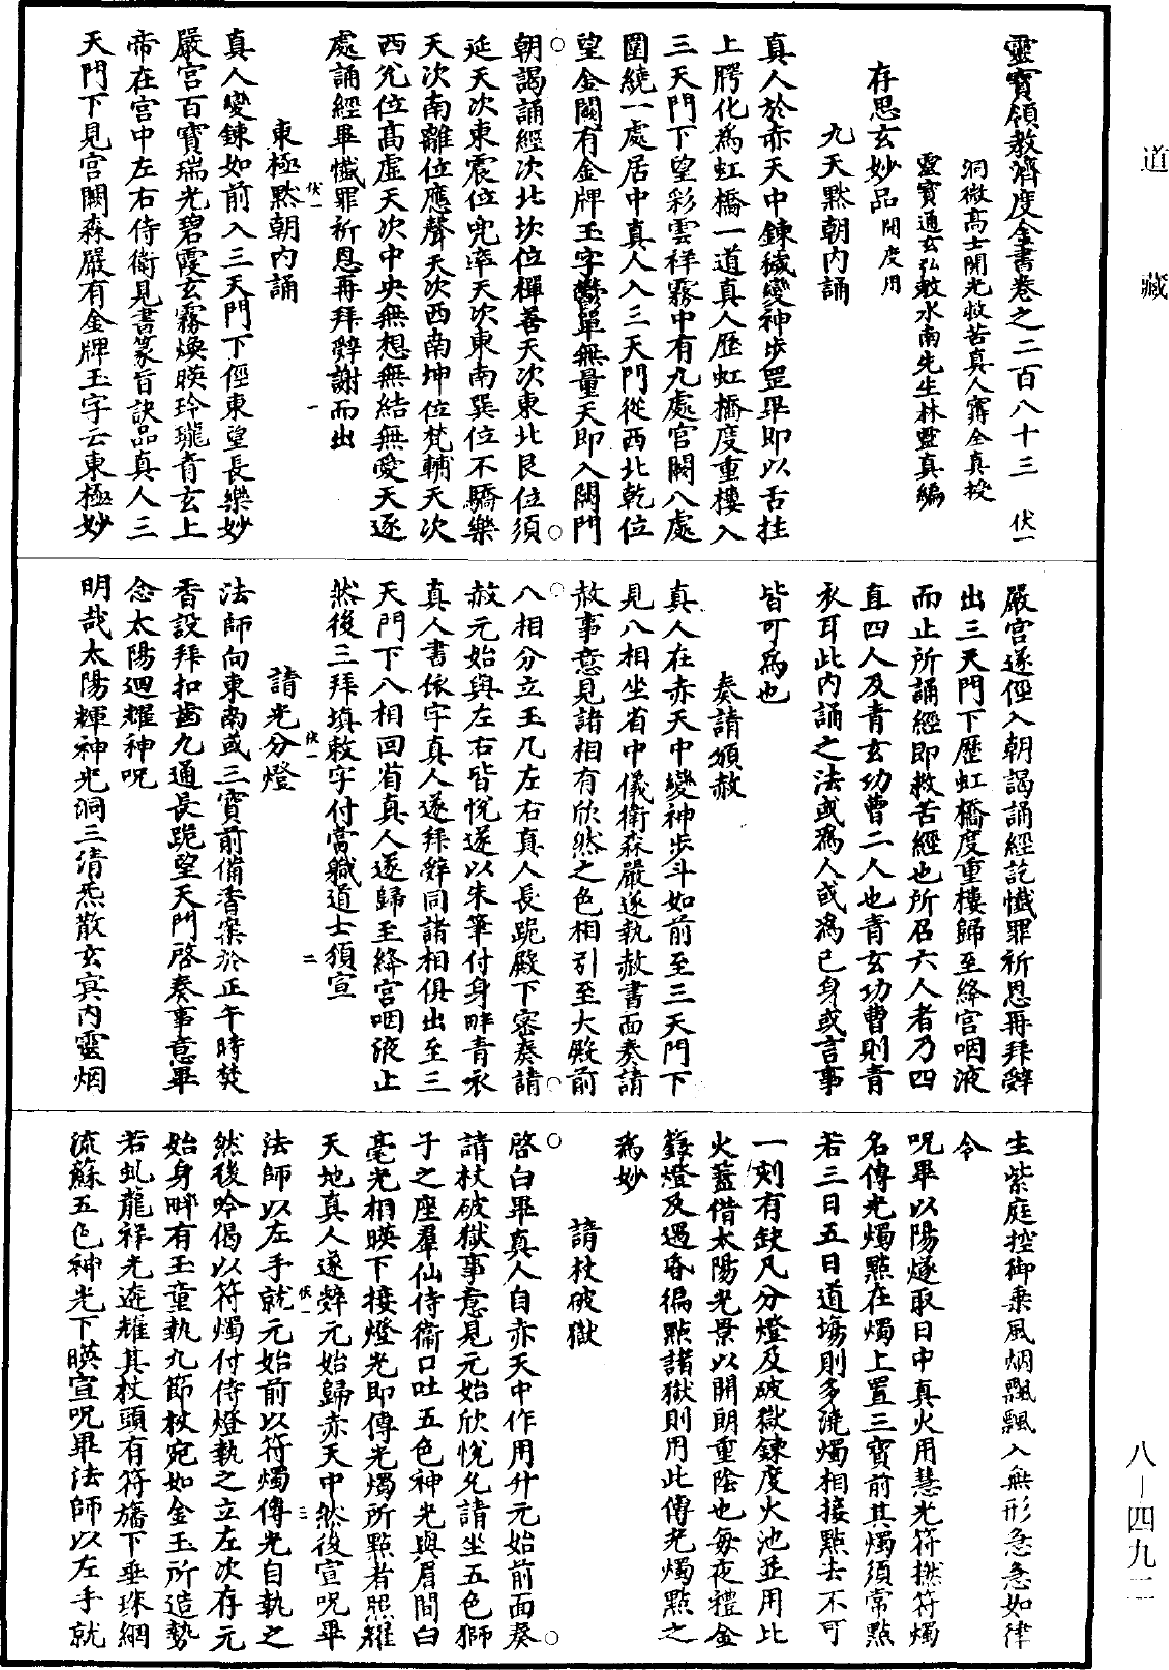 道藏
靈寶領教濟度金書卷之二百八十三 伏一
洞微高士開光救苦真人甯全真授
靈寶通玄弘教水南先生林靈真編
存思玄妙品 開度用
九天默朝內誦
真人於赤天中鍊穢變神步罡畢即以舌拄
上腭化為虹橋一道真人歷虹橋度重樓入
三天門下望彩雲祥霧中有九處宮闕八處
圍繞一處居中真人入三天門從西北乾位
望金闕有金牌玉字鬱單無量天即入闕門
朝謁誦經次北坎位禪善天次東北艮位須
延天次東震位兜率天次東南巽位不驕樂
天次南離位應聲天次西南坤位梵輔天次
西兌位高虛天次中央無想無結無愛天逐
處誦經畢懺罪祈恩再拜辭謝而出
東極默朝內誦
伏一 一
真人變鍊如前入三天門下徑東望長樂妙
嚴宮百寶瑞光碧霞玄霧煥暎玲瓏青玄上
帝在宮中左右侍衛見書篆旨訣品真人三
天門下見宮闕森嚴有金牌玉字云東極妙
嚴宮遂徑入朝謁誦經訖懺罪祈恩再拜辭
出三天門下歷虹橋度重樓歸至絳宮咽液
而止所誦經即救苦經也所召六人者乃四
直四人及青玄功曹二人也青玄功曹則青
衣耳此內誦之法或為人或為己身或言事
皆可為也
奏請頒赦
真人在赤天中變神步斗如前至三天門下
見八相坐省中儀衛森嚴遂執赦書面奏請
赦事意見諸相有欣然之色相引至大殿前
八相分立玉几左右真人長跪殿下密奏請
赦元始與左右皆悅遂以朱筆付身畔青衣
真人書依字真人遂拜辭同諸相俱出至三
天門下八相回省真人遂歸至絳宮咽液止
然後三拜填敕字付當職道士頒宣
請光分燈
伏一 二
法師向東南或三寶前備香案於正午時焚
香設拜扣齒九通長跪望天門啓奏事意畢
念太陽迴耀神呪
明哉太陽輝神光洞三清炁散玄冥內靈烟
生紫庭控御乘風烟飄飄入無形急急如律
令
呪畢以陽燧取日中真火用慧光符撚符燭
名傳光燭點在燭上置三寶前其燭須常點
若三日五日道場則多澆燭相接點去不可
一刻有缺凡分燈及破獄鍊度火池並用此
火蓋借太陽光景以開朗重陰也每夜禮金
籙燈及遇昏徧點諸獄則用此傳光燭點之
為妙
請杖破獄
啓白畢真人自赤天中作用升元始前面奏
請杖破獄事意見元始欣悅允請坐五色獅
子之座羣仙侍衛口吐五色神光與眉間白
毫光相暎下接燈光即傳光燭所點者照耀
天地真人遂辭元始歸赤天中然後宣呪畢
伏一 三
法師以左手就元始前以符燭傳光自執之
然後吟偈以符燭付侍燈執之立左次存元
始身畔有玉童執九節杖宛如金玉所造勢
若虬龍祥光遶耀其杖頭有符旛下垂珠網
流蘇五色神光下暎宣呪畢法師以左手就
八—四九二